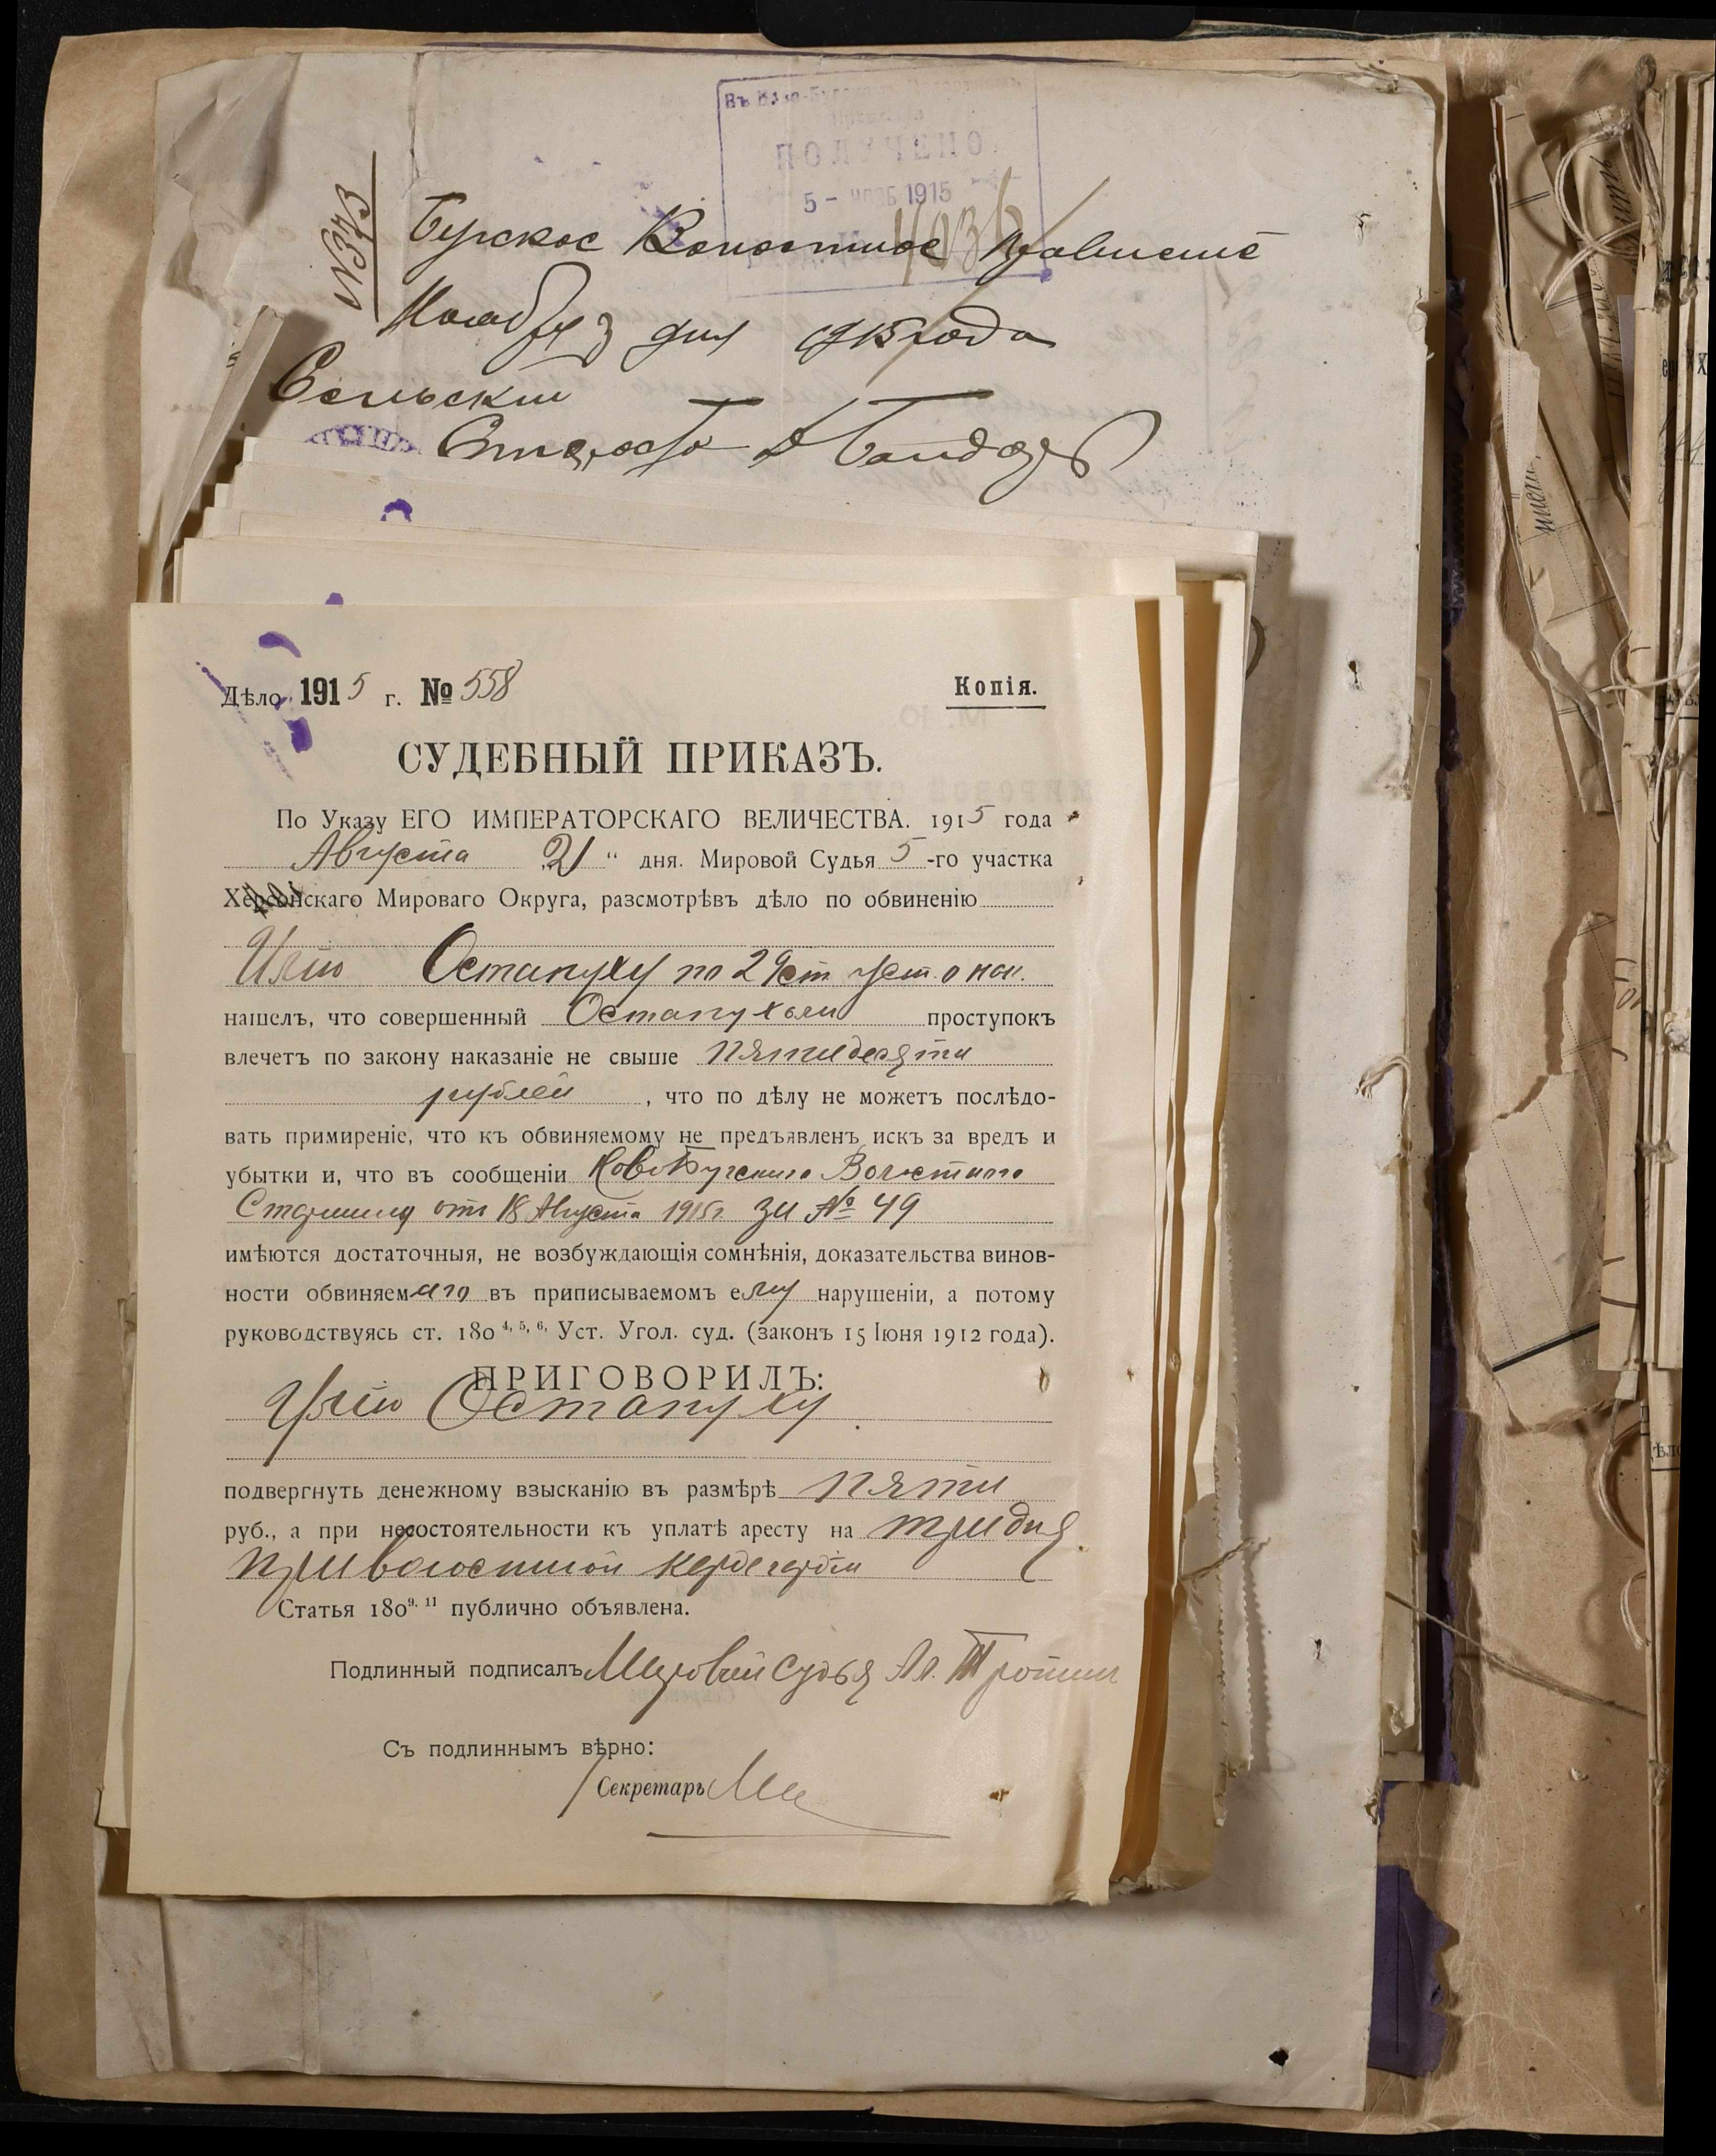 ПОЛУЧЕНО
5 - НОЯБ 1915
№ 373
Бугское Волостное Правление
Ноября 3 дня 1915 года
Сельский
Староста
Дѣло 1915 г. № 558
Копія.
СУДЕБНЫЙ ПРИКАЗЪ.
По Указу ЕГО ИМПЕРАТОРСКАГО ВЕЛИЧЕСТВА. 1915 года
Августа „21“ дня. Мировой Судья 5-го участка
Херсонскаго Мироваго Округа, разсмотрѣвъ дѣло по обвиненію
Остапуху по 29 ст. уст. о нак.
нашелъ, что совершенный Остапухом проступокъ
влечетъ по закону наказаніе не свыше пятидесяти
рублей, что по дѣлу не можетъ послѣдо-
вать примиреніе, что къ обвиняемому не предъявленъ искъ за вредъ и
убытки и, что въ сообщеніи Ново-Бугскаго Волостного
Старшины от 18 Августа 1915 г. за № 49
имѣются достаточныя, не возбуждающія сомнѣнія, доказательства винов-
ности обвиняемаго въ приписываемомъ ему нарушеніи, а потому
руководствуясь ст. 180 4, 5, 6, Уст. Угол. суд. (законъ 15 Іюня 1912 года).
ПРИГОВОРИЛЪ:
Остапуху
подвергнуть денежному взысканію въ размѣрѣ пяти
руб., а при несостоятельности къ уплатѣ аресту на три дня
при волостной кордегардіи
Статья 180 9. 11 публично объявлена.
Подлинный подписалъ Мировой Судья Ал.
Съ подлиннымъ вѣрно:
Секретарь